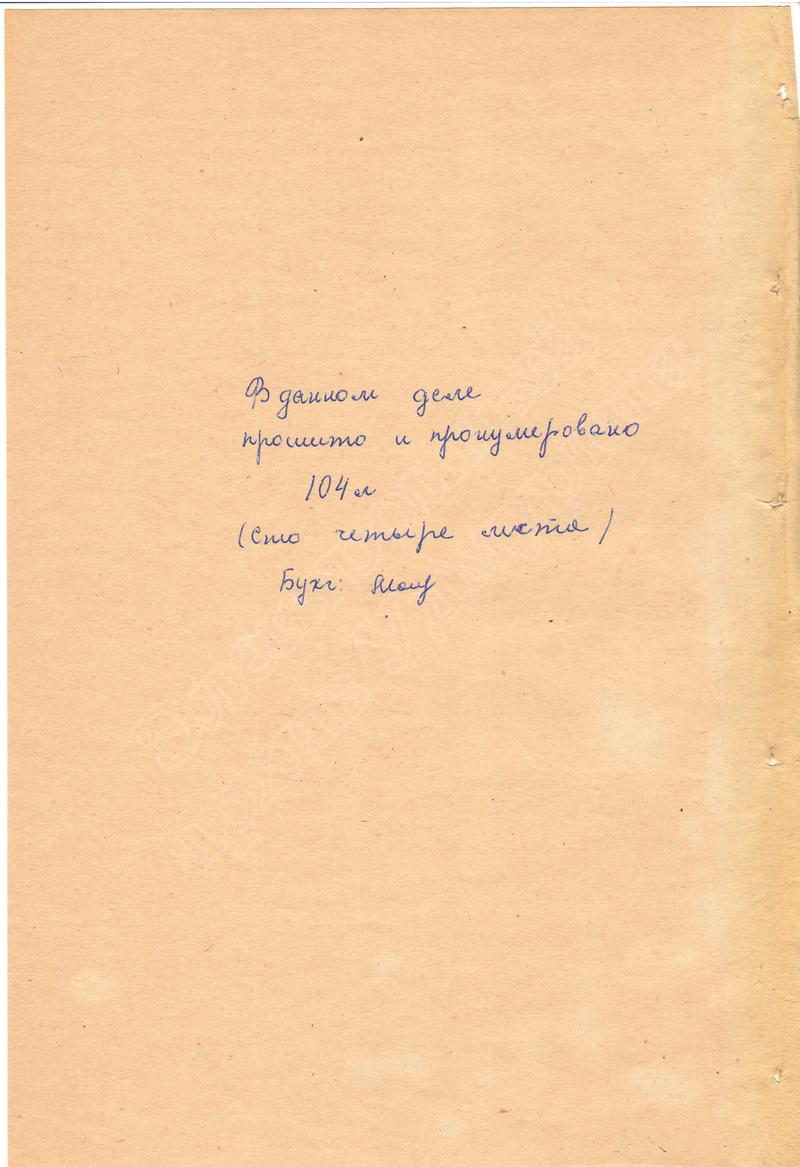 В данном деле
прошито и пронумеровано
104 л
(сто четыре листа)
Бухг: